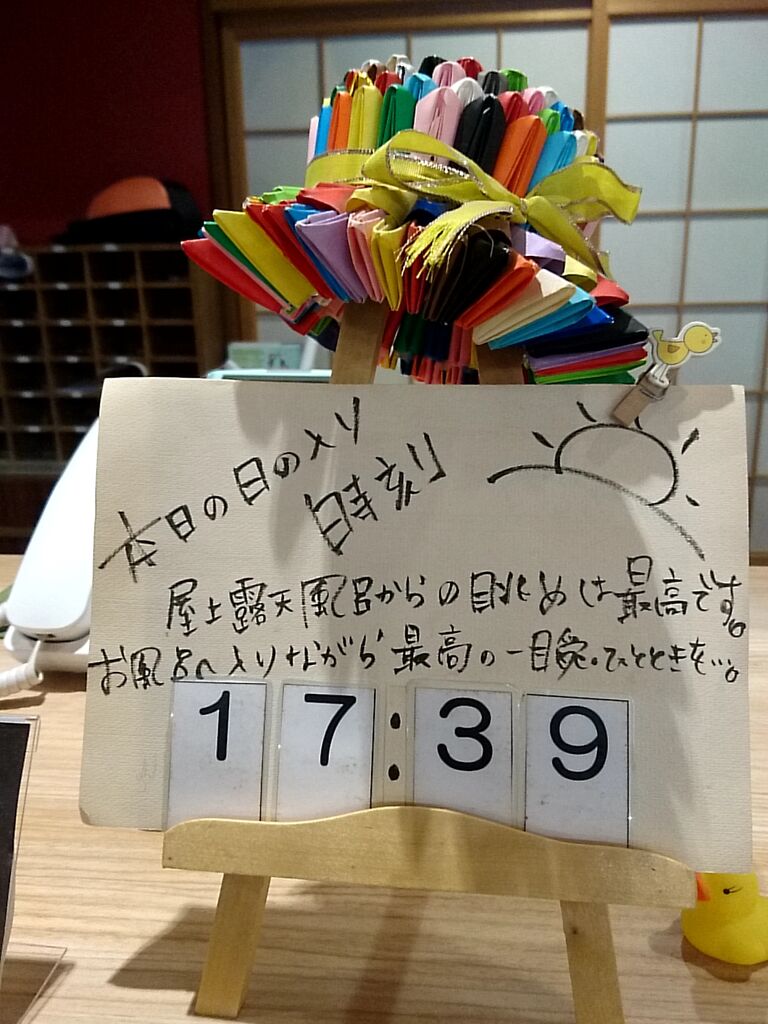 本日の日の入り
時刻
屋上露天風呂からの眺めは最高です。
お風呂へ入りながら最高の一瞬のひとときを…。
17:39